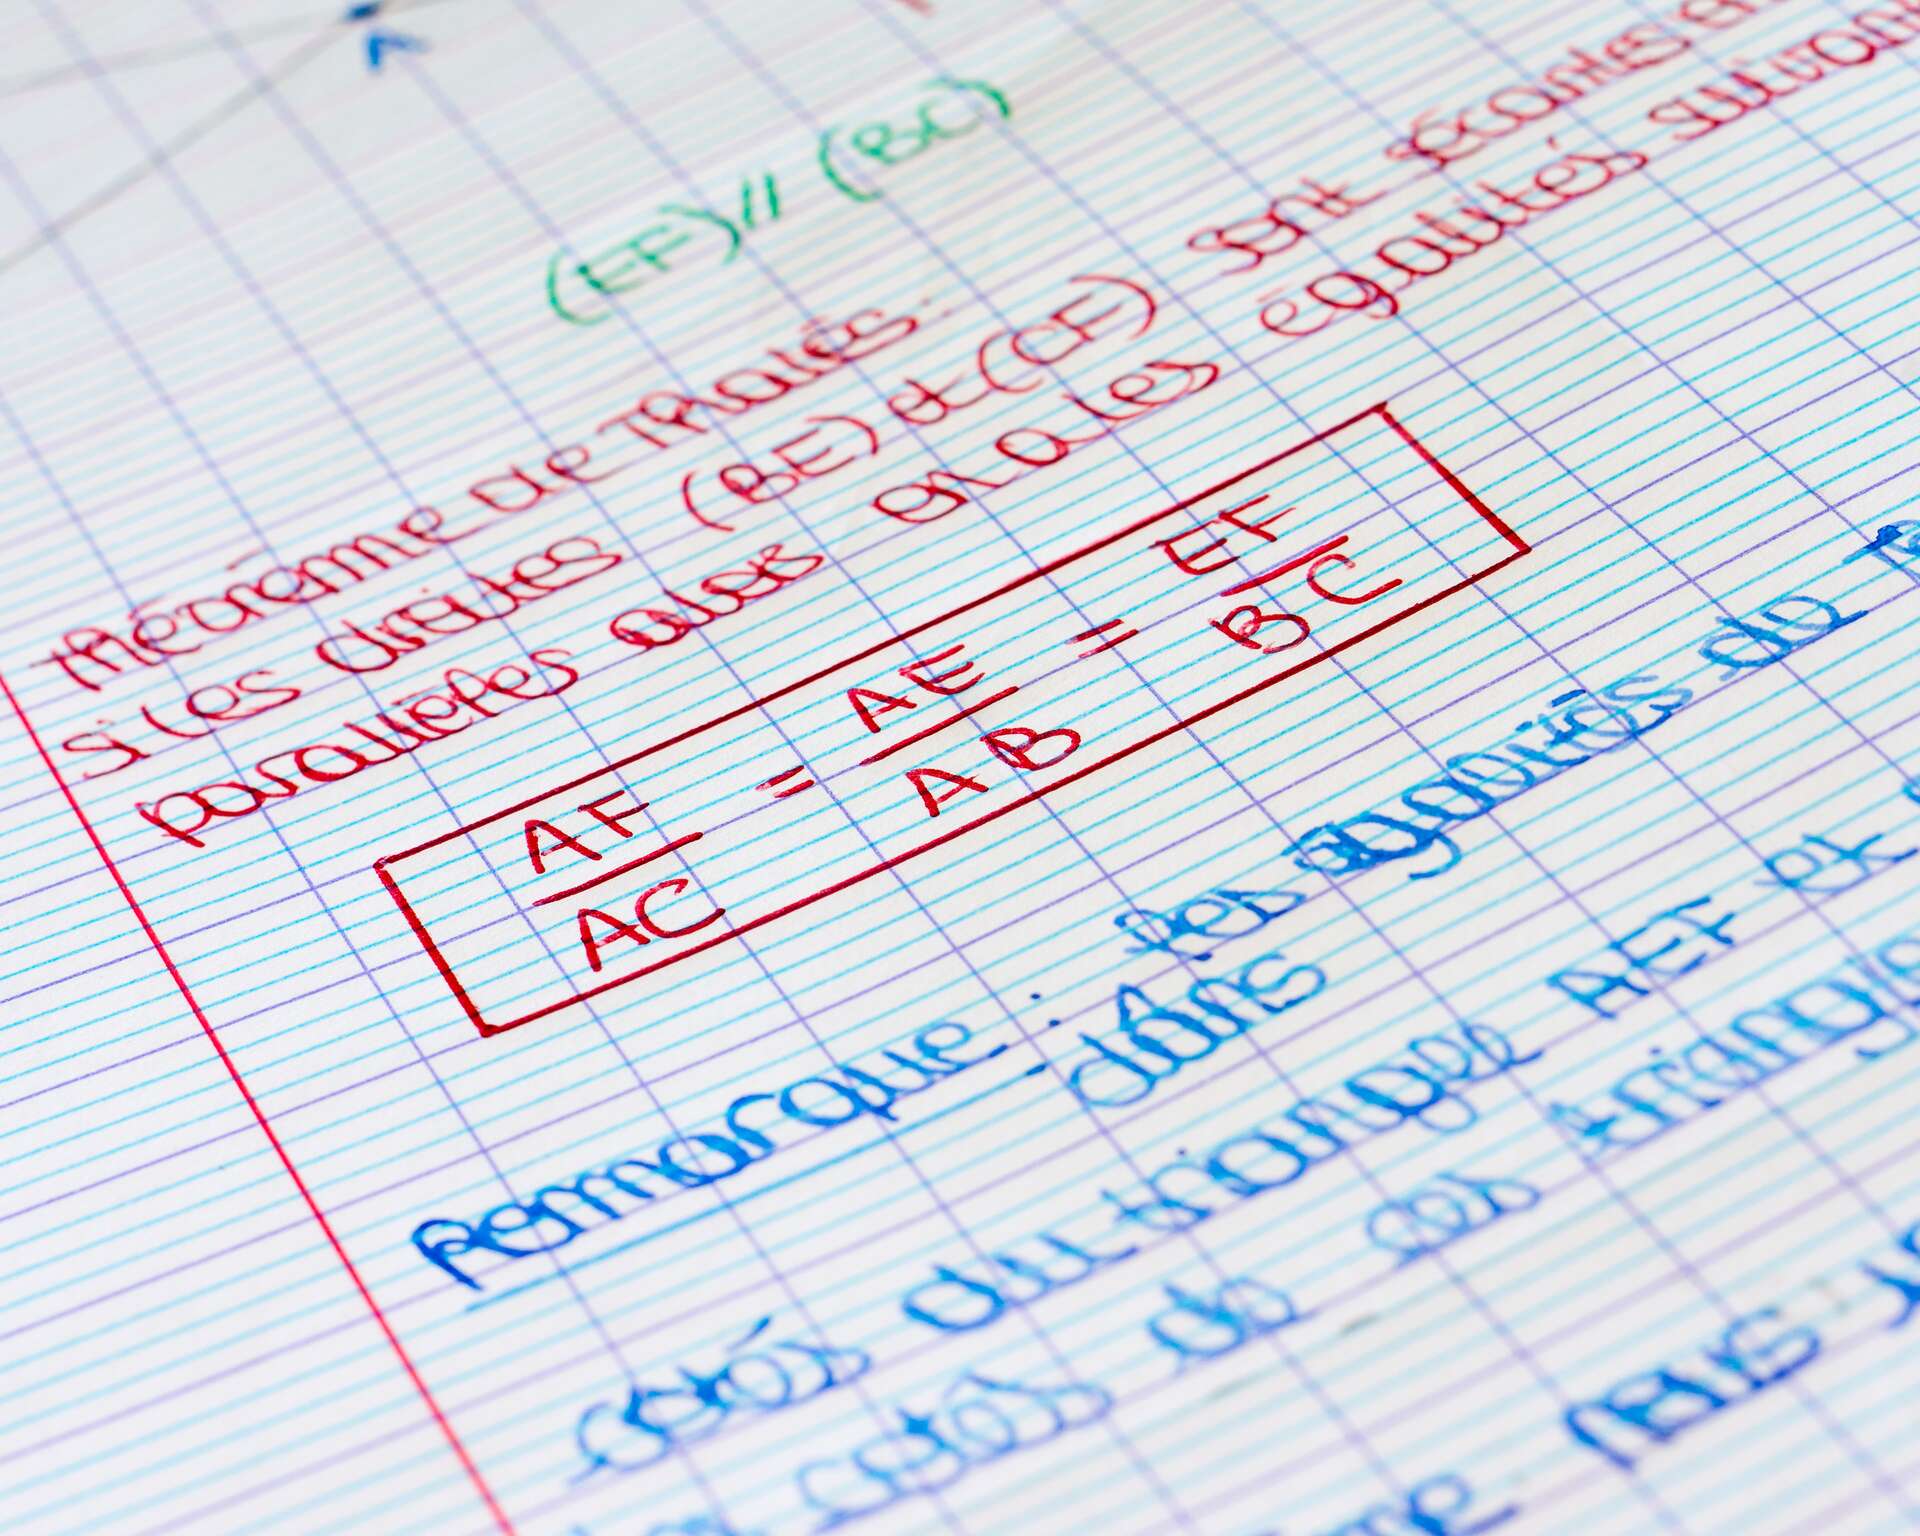 A
(EF) // (BC)
Théorème de Thalès :
si les droites (BE) et (CF) sont sécantes en
parallèles alors on a les égalités suivant
AF/AC = AE/AB = EF/BC
Remarque : Les égalités de
dans
côtés du triangle AEF et
côtés de ces triangle
nous